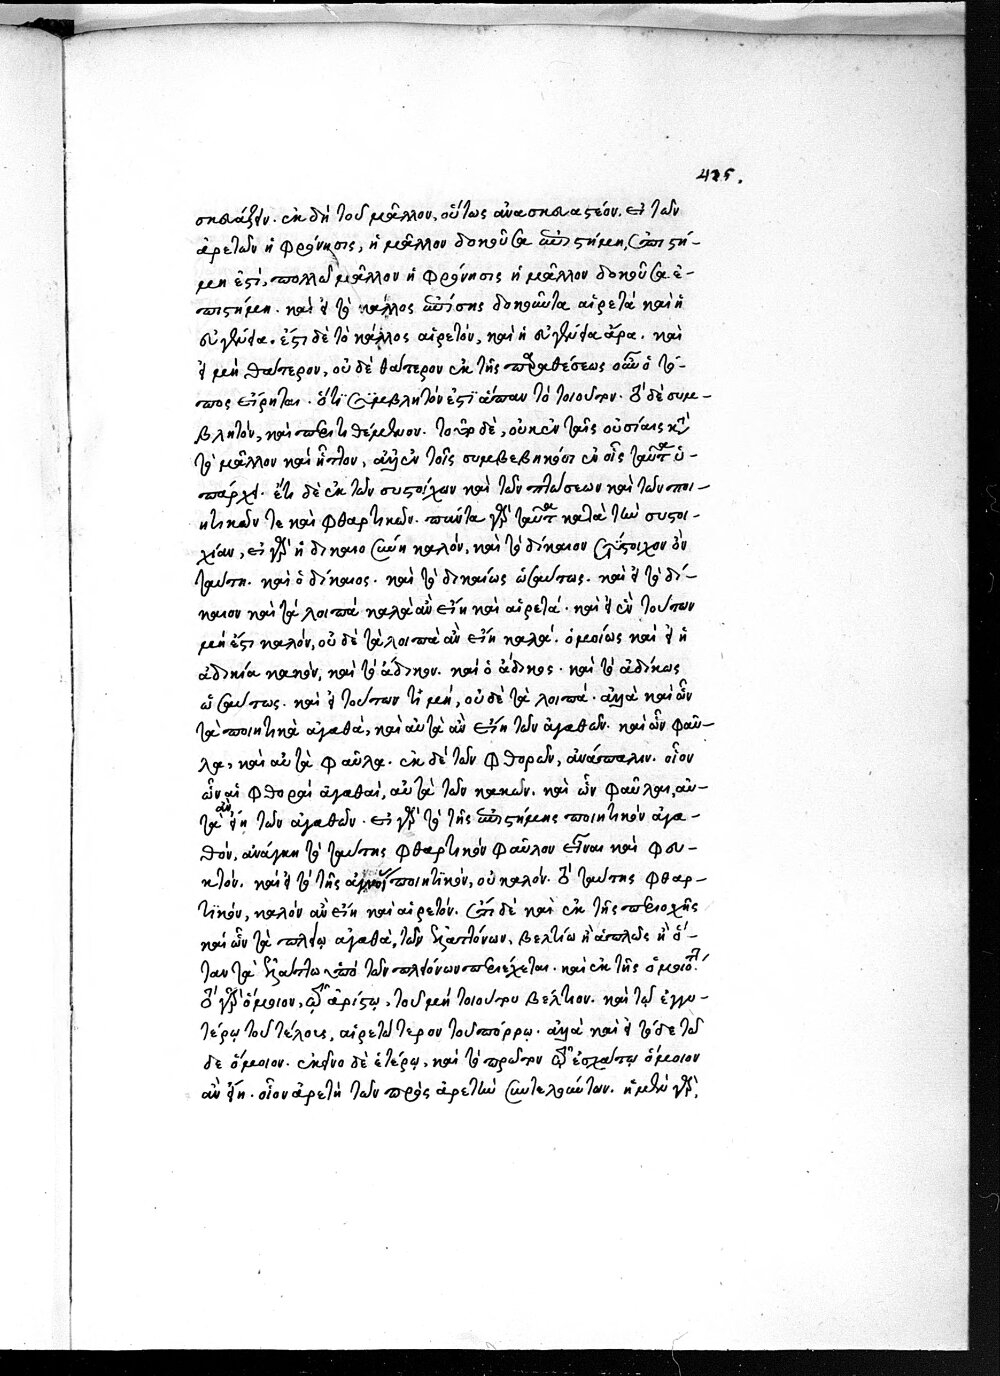 425.
σκευάζειν. ἐκ δὴ τοῦ μᾶλλον, οὕτως ἀνασκευαστέον. εἰ τῶν
ἀρετῶν ἡ φρόνησις, ἡ μᾶλλον δοκοῦσα ἐπιστήμη, ἐπιστή-
μη ἐστί, πολλῶ μᾶλλον ἡ φρόνησις ἡ μᾶλλον δοκοῦσα ἐ-
πιστήμη. καὶ εἰ τὸ κάλλος ἐπίσης δοκοῦντα αἱρετὰ καὶ ἡ
εὐγένεια. ἔστι δὲ τὸ κάλλος αἱρετόν, καὶ ἡ εὐγένεια ἄρα. καὶ
εἰ μὴ θάτερον, οὐδὲ θάτερον ἐκ τῆς προσθέσεως ὁ τό-
πος εἴρηται. ὅτι συμβλητόν ἐστι ἅπαν τὸ τοιοῦτον. εἰ δὲ συμ-
βλητόν, καὶ ἐπιτιθέμενον. δὲ, οὐκ ἐν ταῖς οὐσίαις
τὸ μᾶλλον καὶ ἧττον, ἀλλ' ἐν τοῖς συμβεβηκόσι ἐν οἷς ταῦτα ὑ-
πάρχει. ἔτι δὲ ἐκ τῶν συστοίχων καὶ τῶν πτώσεων καὶ τῶν ποι-
ητικῶν τε καὶ φθαρτικῶν. πάντα γὰρ ταῦτα κατὰ τὴν συστοι-
χίαν, εἰ γὰρ ἡ δικαιοσύνη καλόν, καὶ τὸ δίκαιον σύστοιχον ὂν
ταύτη. καὶ ὁ δίκαιος. καὶ τὸ δικαίως ὡσαύτως. καὶ εἰ τὸ δί-
καιον καὶ τὰ λοιπὰ καλὰ ἂν εἴη καὶ αἱρετά. καὶ εἰ ἓν τούτων
μή ἐστι καλόν, οὐδὲ τὰ λοιπὰ ἂν εἴη καλά. ὁμοίως καὶ εἰ ἡ
ἀδικία κακόν, καὶ τὸ ἄδικον. καὶ ὁ ἄδικος. καὶ τὸ ἀδίκως
ὡσαύτως. καὶ εἰ τούτων τὶ μή, οὐδὲ τὰ λοιπά. ἀλλὰ καὶ ὧν
τὰ ποιητικὰ ἀγαθά, καὶ αὐτὰ ἂν εἴη τῶν ἀγαθῶν. καὶ ὧν φαῦ-
λα, καὶ αὐτὰ φαῦλα. ἐκ δὲ τῶν φθορῶν, ἀνάπαλιν. οἷον
ὧν αἱ φθοραὶ ἀγαθαί, αὐτὰ τῶν κακῶν. καὶ ὧν φαῦλαι, αὐ-
τὰ ἂν εἴη τῶν ἀγαθῶν. εἰ γὰρ τὸ τῆς ἐπιστήμης ποιητικὸν ἀγα-
θόν, ἀνάγκη τὸ ταύτης φθαρτικὸν φαῦλον εἶναι καὶ φευ-
κτόν. καὶ εἰ τὸ τῆς ἀγνοίας ποιητικόν, οὐ καλόν. τὸ ταύτης φθαρ-
τικόν, καλὸν ἂν εἴη καὶ αἱρετόν. ἔτι δὲ καὶ ἐκ τῆς περιοχῆς
καὶ ὧν τὰ πλείω ἀγαθά, τῶν ἐλαττόνων, βελτίω ἢ ἁπλῶς ἢ ὅ-
ταν τὰ ἐλάττω ὑπὸ τῶν πλειόνων περιέχεται. καὶ ἐκ τῆς ὁμοιότητος.
τὸ γὰρ ὅμοιον, τῷ ἀρίστῳ, τοῦ μὴ τοιούτου βέλτιον. καὶ τῷ ἐγγυ-
τέρῳ τοῦ τέλους, αἱρετώτερον τοῦ πόρρω. ἀλλὰ καὶ εἰ τόδε τῶ
δε ὅμοιον. ἐκεῖνο δὲ ἑτέρῳ, καὶ τὸ πρῶτον τῷ ἐσχάτῳ ὅμοιον
ἂν εἴη. οἷον ἀρετὴ τῶν πρὸς ἀρετὴν συντελούντων. ἡ μὲν γὰρ,